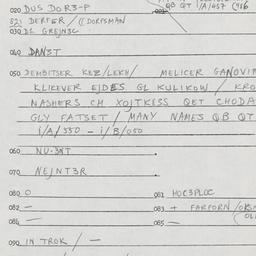 020 DUS DOR3-P
QB QT 1/A/457 (986
021 DERTER / (( DORPSMAN
030 D1 GREJN3C
040 DAN3T
050 DEMBITSER KEZ/LEKH/ MELICER GANOVIM
KLIKEVER EJDES GL KULIKOW / KRO
NASHERS CM XOJTKESS QET CHODA
GLY FATSET / MANY NAMES QB QT
1/A/330 - 1/B/050
060 NU-3NT
070 NEJNT3R
080 O
081 HOE3PLOC
082 -
083 + FARPORN /
084 -
085 -
090 IN TROK / -